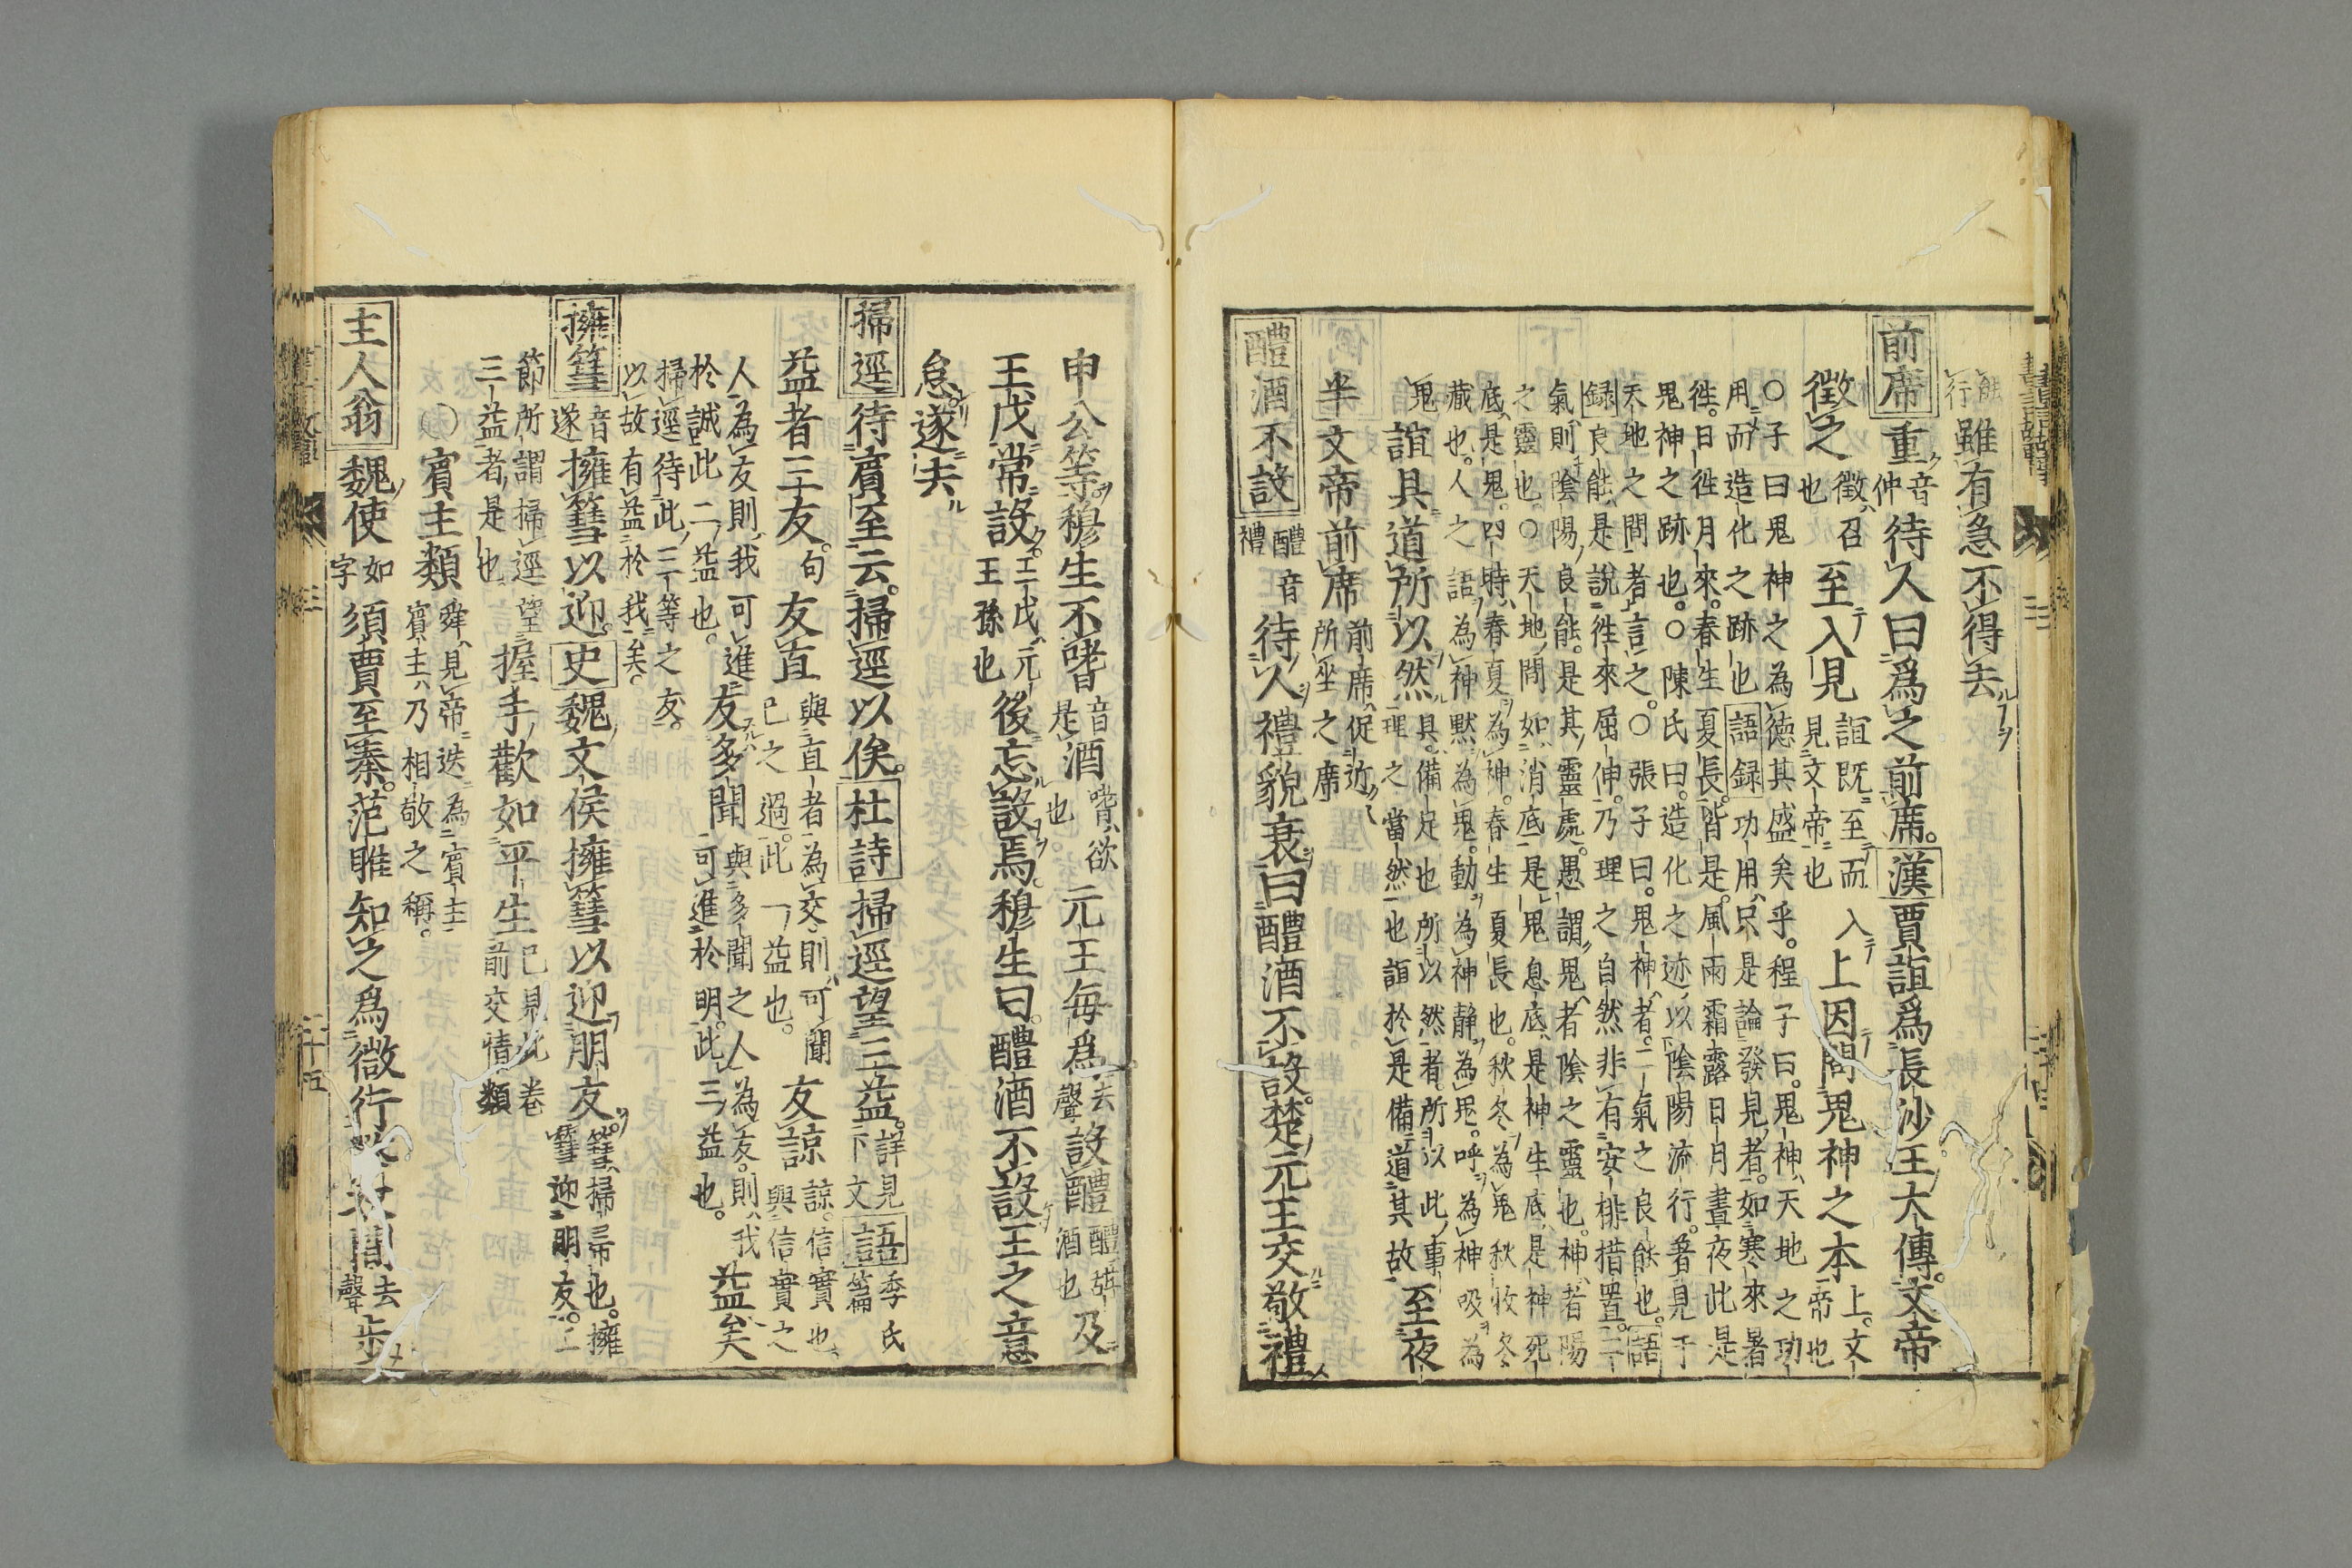 雖有急不得去
前席 重 音仲 待人曰爲之前席。漢賈誼爲長沙王大傳。文帝
徵之 徵召也 至入見 誼既至而入見文帝也 上因問鬼神之本 上。文帝也
○子曰鬼神之為德其盛矣乎。程子曰。鬼神天地之功
用而造化之跡也 語録 功用只是論發見者。如寒來暑
徃。日徃月來。春生夏長。皆是。風雨霜露日月晝夜此是
鬼神之跡也。○陳氏曰。造化之迹以陰陽流行。著見于
天地之間者言之。○張子曰。鬼神者。二氣之良能也。語
録 良能是說徃來屈伸。乃理之自然非有安排措置。二
氣則陰陽良能。是其靈處。愚謂鬼者陰之靈也。神者陽
之靈也。○天地間如消底是鬼息底是神生底是神死
底是鬼。四時春夏為神。春生夏長也。秋冬為鬼秋收冬
藏也。人之語為神默為鬼。動為神静為鬼。呼為神吸為
鬼
誼具道所以然 具。備足也所以然者。所以此事理之當然也誼於是備道其故 至夜
半文帝前席 前席促近所坐之席
醴酒不設 醴音禮 待人禮貌衰曰醴酒不設。楚元王交敬禮
申公等。穆生不嗜 音是 酒 嗜欲也。 元王每爲 去聲 設醴 醴酒也 及
王戊常設。王戊元王孫也 後忘設焉。穆生曰。醴酒不設王之意
怠。遂去
掃逕 待賓至云。掃逕以俟。杜詩 掃逕望三益。詳見下文 語 季氏篇
益者三友。句 友直 與直者為交則可聞己之過。此一益也。 友諒 諒。信也與信實之
人為友則我可進於誠此二益也。 友多聞 與多聞之人為友。則我可進於明。此三益也。 益矣
掃逕待此三等之友。以故有益於我矣。
擁篲 音遂 擁篲以迎。史 魏文侯擁篲以迎朋友。篲掃帚也。擁篲迎朋友。二
節所謂掃逕望三益者是也 握手歡如平生 已見此卷前交情類
○賓主類 舜見帝迭為賓主賓主乃相敬之稱。
主人翁 魏使 如字 須賈至秦。范雎知之爲微行 去聲 歩